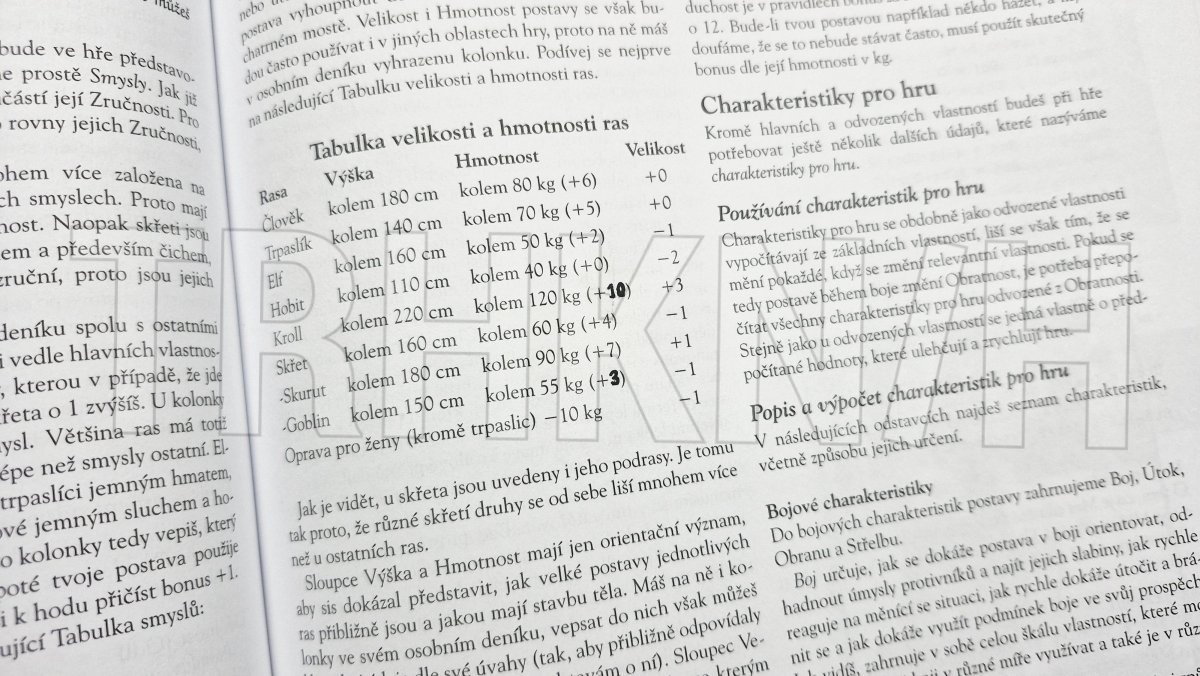 můžeš
bude ve hře představo-
prostě Smysly. Jak již
částí její Zručnosti. Pro
rovny jejich Zručnosti,
ohem více založena na
ch smyslech. Proto mají
nost. Naopak skřeti jsou
em a především čichem,
zruční, proto jsou jejich
deníku spolu s ostatními
i vedle hlavních vlastnos-
, kterou v případě, že jde
řeta o 1 zvýšíš. U kolonky
mysl. Většina ras má totiž
épe než smysly ostatní. El-
trpaslíci jemným hmatem,
ové jemným sluchem a ho-
o kolonky tedy vepiš, který
poté tvoje postava použije
i k hodu přičíst bonus +1.
ující Tabulka smyslů:
postava vyhoupnout
chatrném mostě. Velikost i Hmotnost postavy se však bu-
dou často používat i v jiných oblastech hry, proto na ně máš
v osobním deníku vyhrazenu kolonku. Podívej se nejprve
na následující Tabulku velikosti a hmotnosti ras.
Tabulka velikosti a hmotnosti ras
Rasa Výška Hmotnost Velikost
Člověk kolem 180 cm kolem 80 kg (+6) +0
Trpaslík kolem 140 cm kolem 70 kg (+5) +0
Elf kolem 160 cm kolem 50 kg (+2) −1
Hobit kolem 110 cm kolem 40 kg (+0) −2
Kroll kolem 220 cm kolem 120 kg (+10) +3
Skřet kolem 160 cm kolem 60 kg (+4) −1
-Skurut kolem 180 cm kolem 90 kg (+7) +1
-Goblin kolem 150 cm kolem 55 kg (+3) −1
Oprava pro ženy (kromě trpaslic) −10 kg −1
Jak je vidět, u skřeta jsou uvedeny i jeho podrasy. Je tomu
tak proto, že různé skřetí druhy se od sebe liší mnohem více
než u ostatních ras.
Sloupce Výška a Hmotnost mají jen orientační význam,
aby sis dokázal představit, jak velké postavy jednotlivých
ras přibližně jsou a jakou mají stavbu těla. Máš na ně i ko-
lonky ve svém osobním deníku, vepsat do nich však můžeš
dle své úvahy (tak, aby přibližně odpovídaly
o ní). Sloupec Ve-
kterým
duchost je v pravidlech bonus
o 12. Bude-li tvou postavou například někdo házet, a
doufáme, že se to nebude stávat často, musí použít skutečný
bonus dle její hmotnosti v kg.
Charakteristiky pro hru
Kromě hlavních a odvozených vlastností budeš při hře
potřebovat ještě několik dalších údajů, které nazýváme
charakteristiky pro hru.
Používání charakteristik pro hru
Charakteristiky pro hru se obdobně jako odvozené vlastnosti
vypočítávají ze základních vlastností, liší se však tím, že se
mění pokaždé, když se změní relevantní vlastnosti. Pokud se
tedy postavě během boje změní Obratnost, je potřeba přepo-
čítat všechny charakteristiky pro hru odvozené z Obratnosti.
Stejně jako u odvozených vlastností se jedná vlastně o před-
počítané hodnoty, které ulehčují a zrychlují hru.
Popis a výpočet charakteristik pro hru
V následujících odstavcích najdeš seznam charakteristik,
včetně způsobu jejich určení.
Bojové charakteristiky
Do bojových charakteristik postavy zahrnujeme Boj, Útok,
Obranu a Střelbu.
Boj určuje, jak se dokáže postava v boji orientovat, od-
hadnout úmysly protivníků a najít jejich slabiny, jak rychle
reaguje na měnící se situaci, jak rychle dokáže útočit a brá-
nit se a jak dokáže využít podmínek boje ve svůj prospěch
vidíš, zahrnuje v sobě celou škálu vlastností, které
v různé míře využívat a také je v